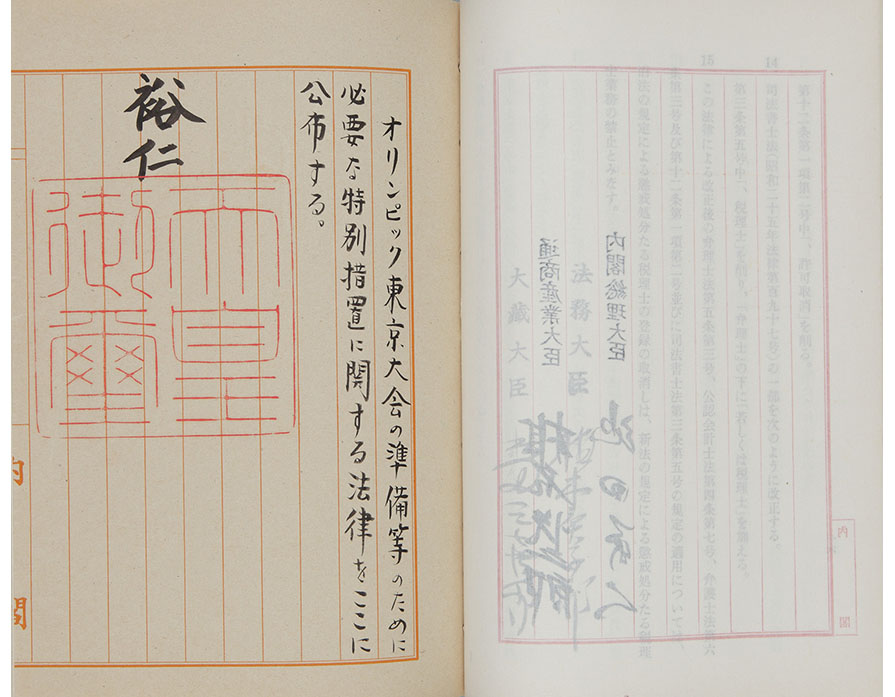 第十二条第一項第二号中「、許可取消」を削る。
14 司法書士法(昭和二十五年法律第百九十七号)の一部を次のように改正する。
第三条第五号中「、税理士」を削り、「弁理士」の下に「若しくは税理士」を加える。
15 この法律による改正後の弁理士法第五条第三号、公認会計士法第四条第七号、弁護士法第六
条第三号及び第十二条第一項第二号並びに司法書士法第三条第五号の規定の適用については、
旧法の規定による懲戒処分たる税理士の登録の取消しは、新法の規定による懲戒処分たる税理
士業務の禁止とみなす。
内閣総理大臣 池田勇人
法務大臣
通商産業大臣
大蔵大臣
内閣
オリンピック東京大会の準備等のために
必要な特別措置に関する法律をここに
公布する。
裕仁
天皇御璽
内閣